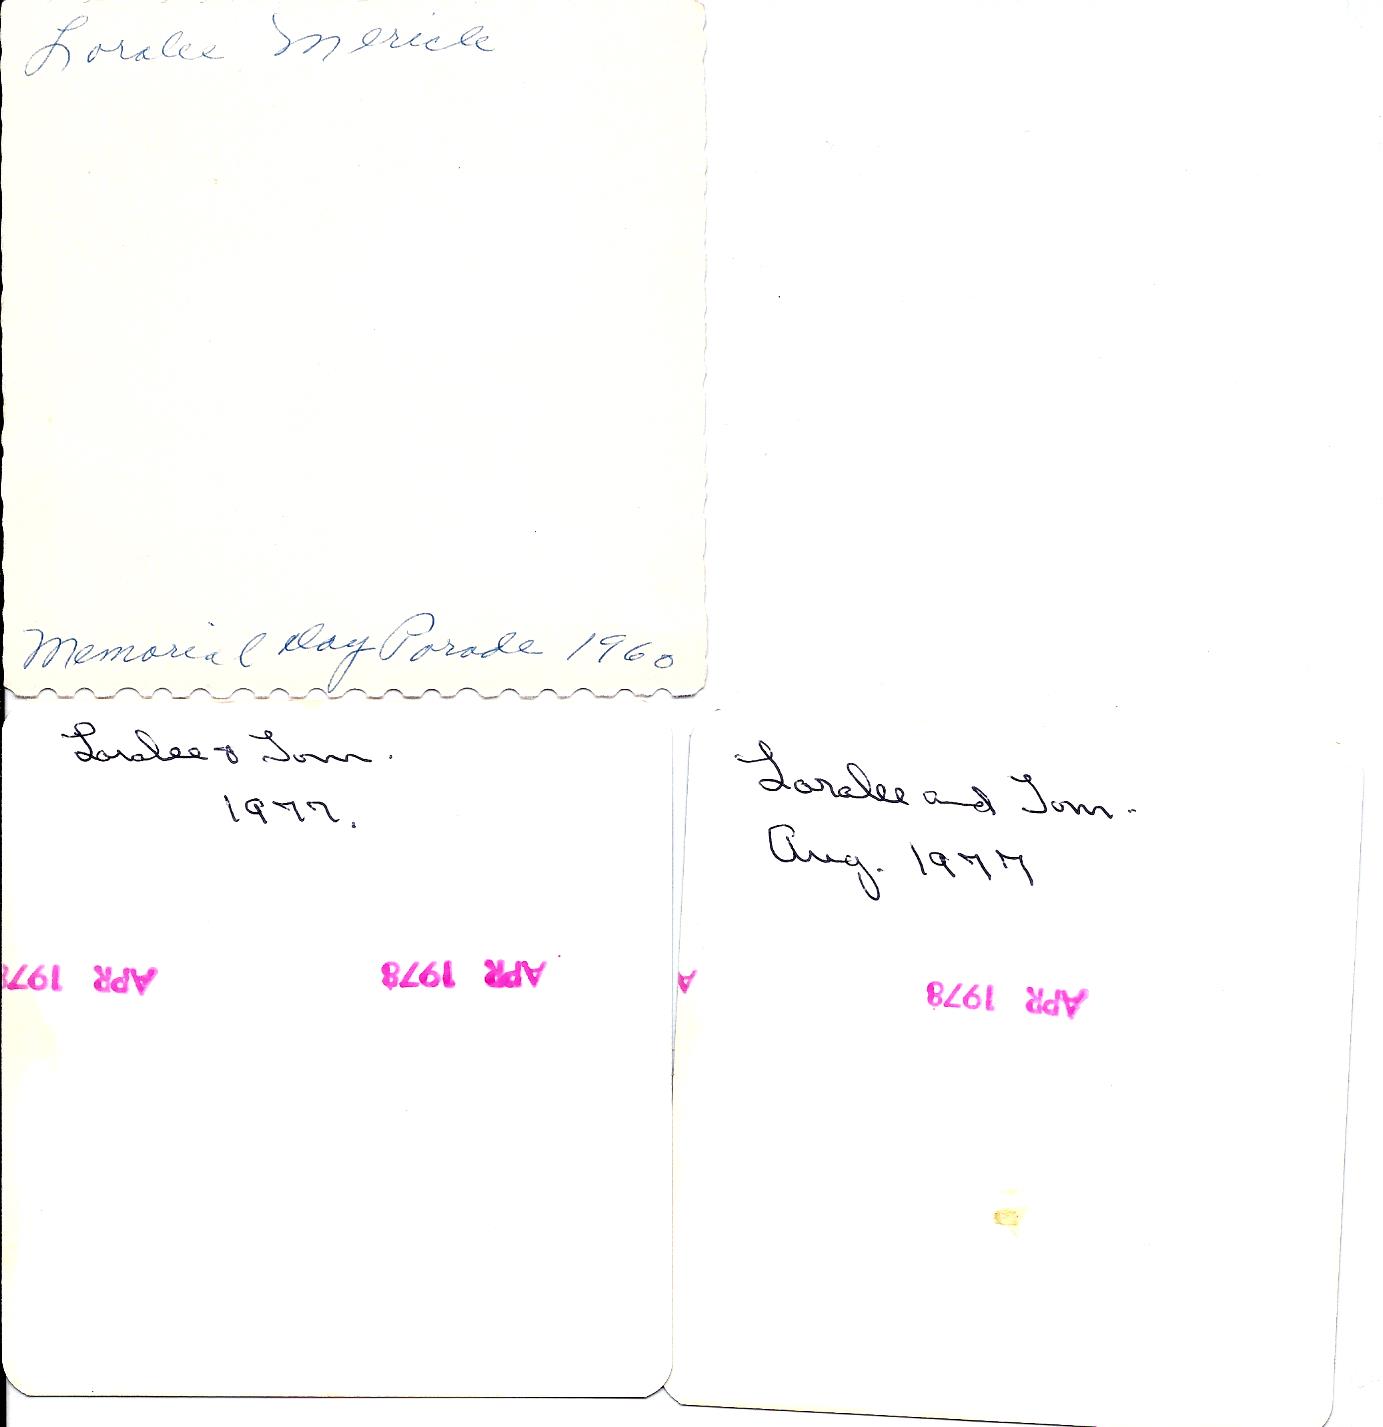 Loralee Merick
Memorial Day Parade 1960
Loralee & Tom.
1977.
APR 1978
APR 197
Loralee and Tom.
Aug. 1977
APR 1978
A